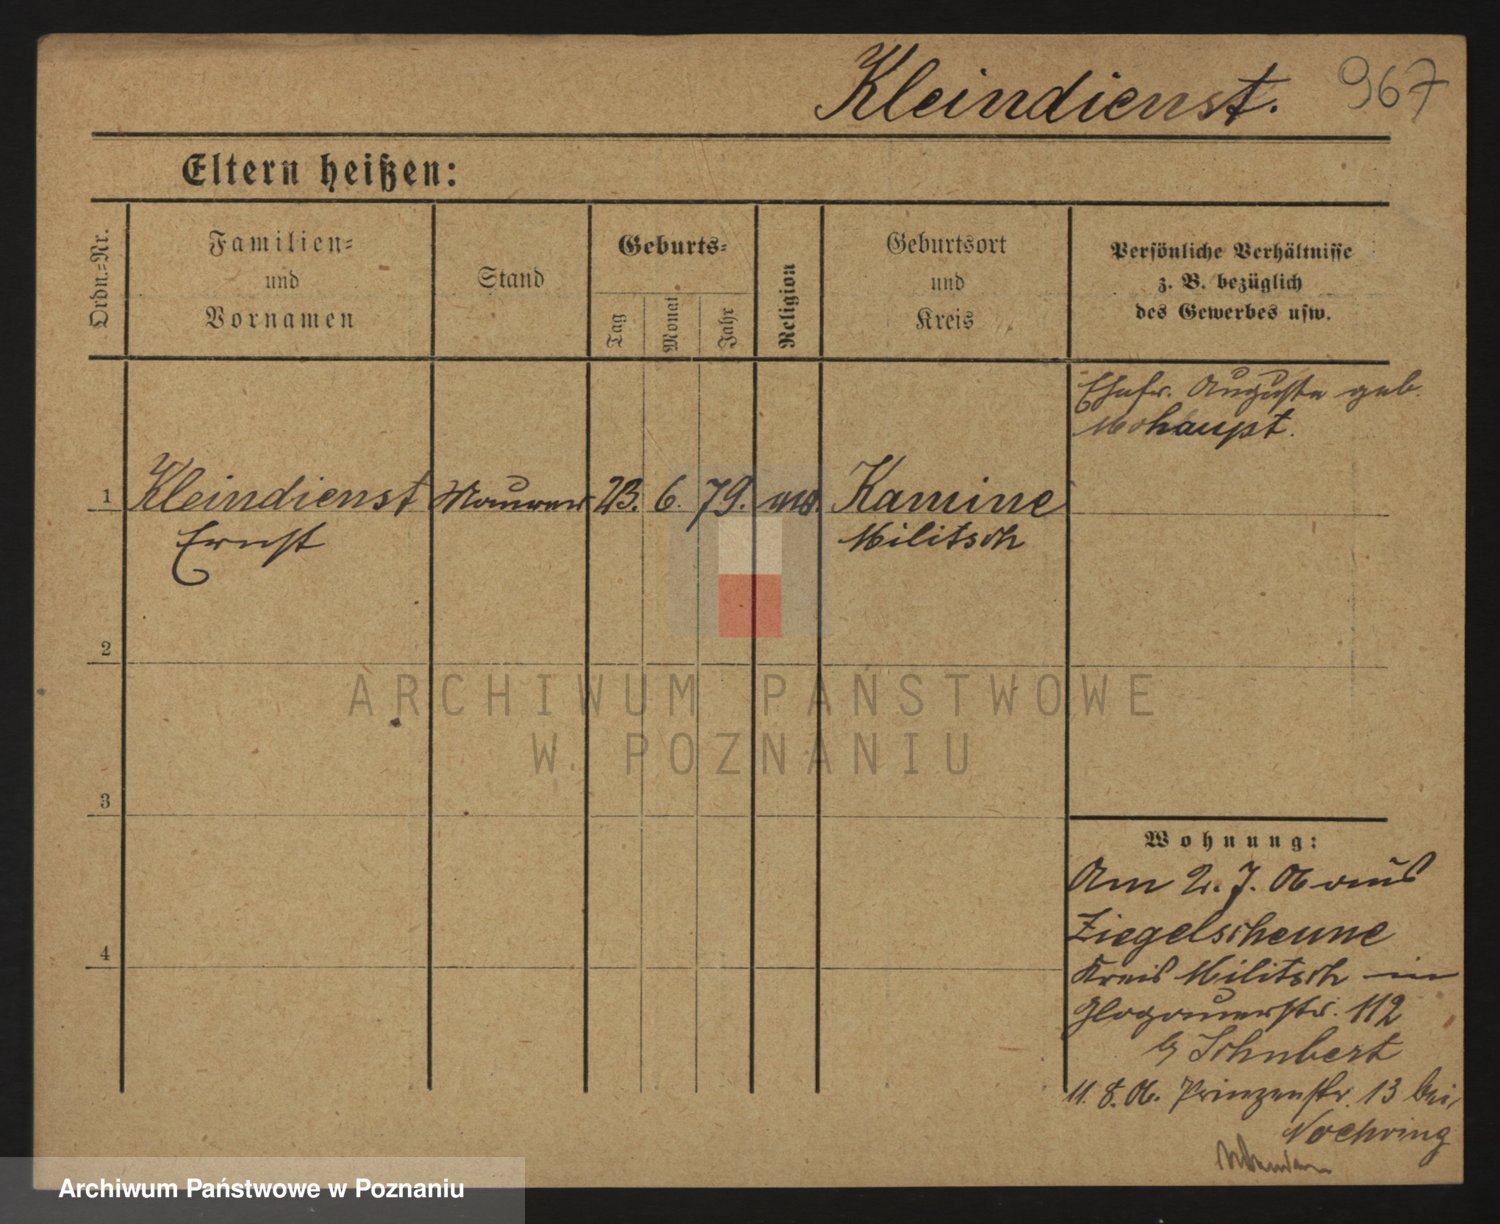 Kleindienst. 967
Eltern heißen:
Ordn.-Nr.
Familien-
und
Vornamen
Stand
Geburts-
Tag
Monat
Jahr
Religion
Geburtsort
und
Kreis
Persönliche Verhältnisse
z. B. bezüglich
des Gewerbes usw.
Ehefr. Auguste geb.
Mohaupt.
1 Kleindienst Maurer 23. 6. 79. Kamine
Ernst Militsch
2
3
4
Wohnung:
Am 2. 7. 06 aus
Ziegelscheune
Kreis Militsch in
Glogauerstr. 112
b/ Schubert
11. 8. 06. Prinzenstr. 13 bei
ARCHIWUM PAŃSTWOWE
W POZNANIU
Archiwum Państwowe w Poznaniu